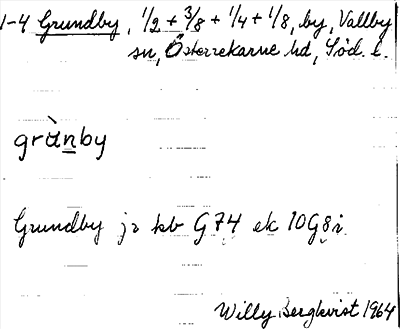 1-4 Grundby, 1/2 + 3/8 + 1/4 + 1/8, by, Vallby
sn, Österrekarne hd, Söd. l.
grànby
Grundby jr kb G74 ek 10G8i
Willy Bergkvist 1964